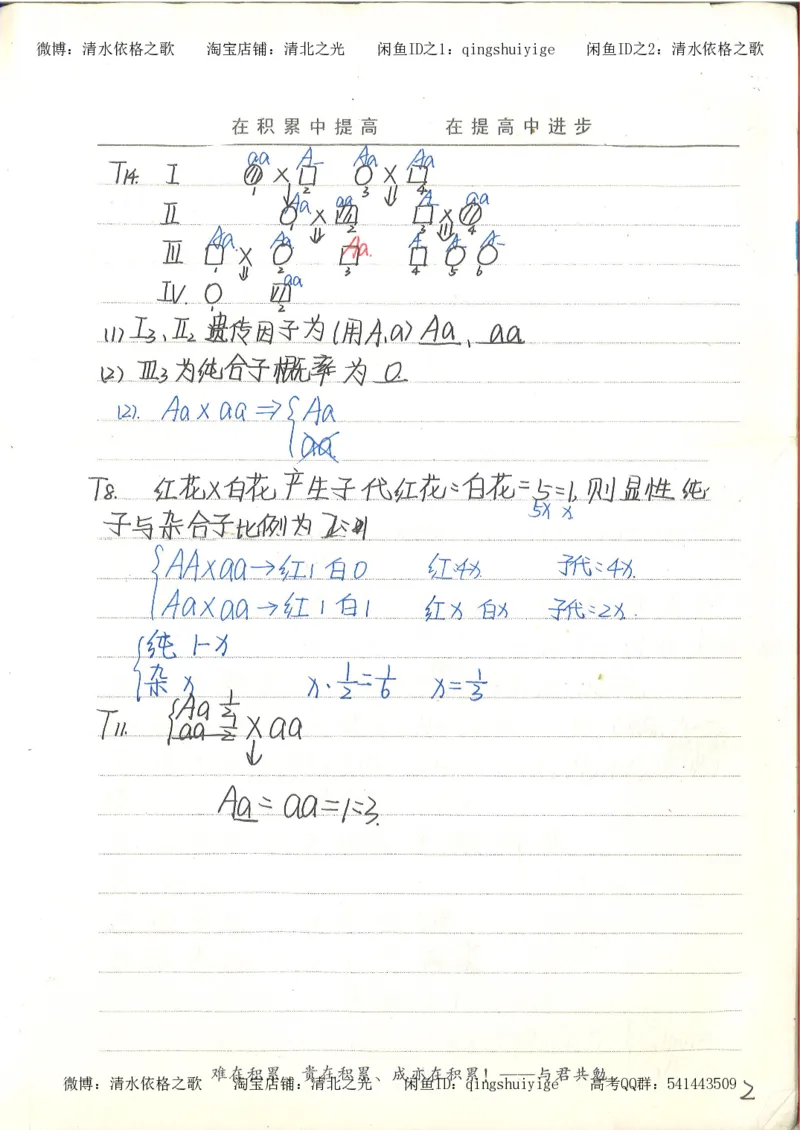 微博：清水依格之歌 淘宝店铺：清北之光 闲鱼ID之1：qingshuiyige 闲鱼ID之2：清水依格之歌
在积累中提高 在提高中进步
aa A_ Aa Aa
T14. I × ×
1 2 3 4
Aa aa A_ aa
II × ×
1 2 3 4
Aa Aa Aa. A_ A_ A_
III ×
1 2 3 4 5 6
aa
IV.
1 2
(1) I3、II2 遗传因子为(用A、a) Aa、aa
(2) III3为纯合子概率为 0
(2). Aa×aa⇒{Aa
aa
T8. 红花×白花产生子代红花:白花=5:1,则显性纯
5x x
子与杂合子比例为2:1
AA×aa→红1白0 红:4x 子代:4x.
Aa×aa→红1白1 红x 白x 子代:2x.
纯 1-x
杂 x x·1/2=1/6 x=1/3
Aa 1/2
T11. aa 1/2 ×aa
↓
Aa:aa=1:3.
难在积累、贵在积累、成亦在积累！——与君共勉
微博：清水依格之歌 淘宝店铺：清北之光 闲鱼ID：qingshuiyige 高考QQ群：541443509
2